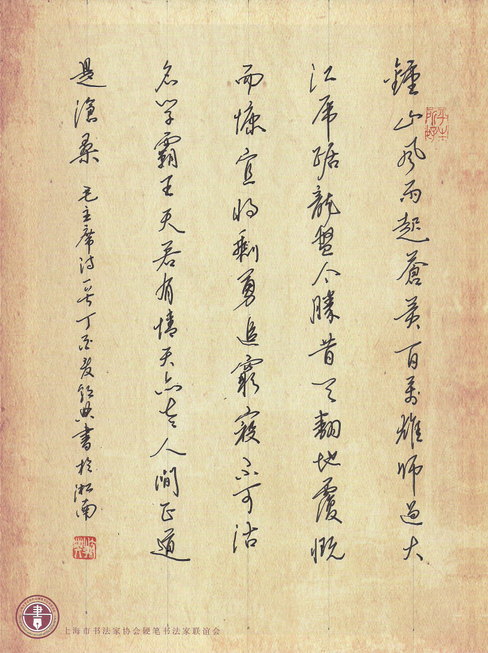 鍾山風雨起蒼黃百萬雄師過大
江虎踞龍盤今勝昔天翻地覆慨
而慷宜將剩勇追窮寇不可沽
名學霸王天若有情天亦老人間正道
是滄桑 毛主席詩一首丁酉夏 書於淞南
上海市书法家协会硬笔书法家联谊会
書